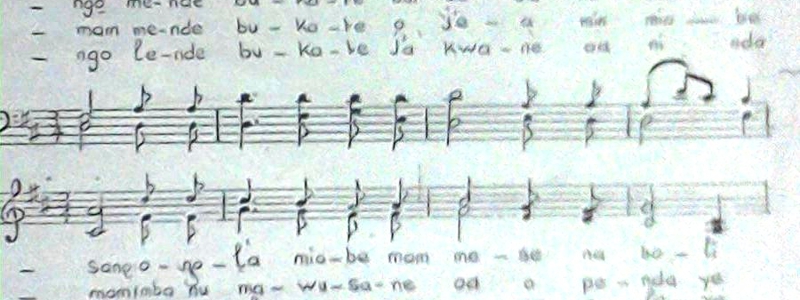 – ngo me-nde bu – ka – be
– mam me-nde bu – ka – be o je – a nin mio — be
– ngo le-nde bu – ka – be ja kwa – ne oa ni nda
– sango – no – la mio – be mam me – se na bo – li
– mamimba nu ma – wu – sa – ne oa o po – nda ye